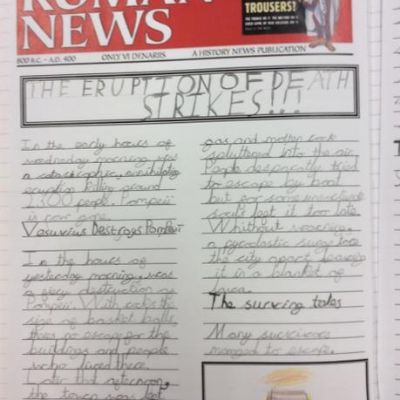 ROMAN
NEWS
TROUSERS?
800 B.C. - A.D. 400
ONLY VI DENARIIS
A HISTORY NEWS PUBLICATION
THE ERUPTION OF DEATH
STRIKES!!!
In the early hours of
wednesday morning was
a catastrophic, annihilating
eruption killing around
2300 people. Pompeii
is now gone.
Vesuvius Destroys Pompeii
In the hours of
yesterday morning, was
a destruction of
Pompeii. With rocks the
size of basket balls,
there no escape for the
buildings and people
who lived there.
Later that afternoon,
the town was left
gas and molten rock
spluttered into the air.
People desperatly tried
to escape by boat
but for some
left it too late.
Whithout warning,
a pyroclastic surge tore
the city apart leaving
it in a blanket of
lava.
The surving tales
Many survivers
managed to escape.